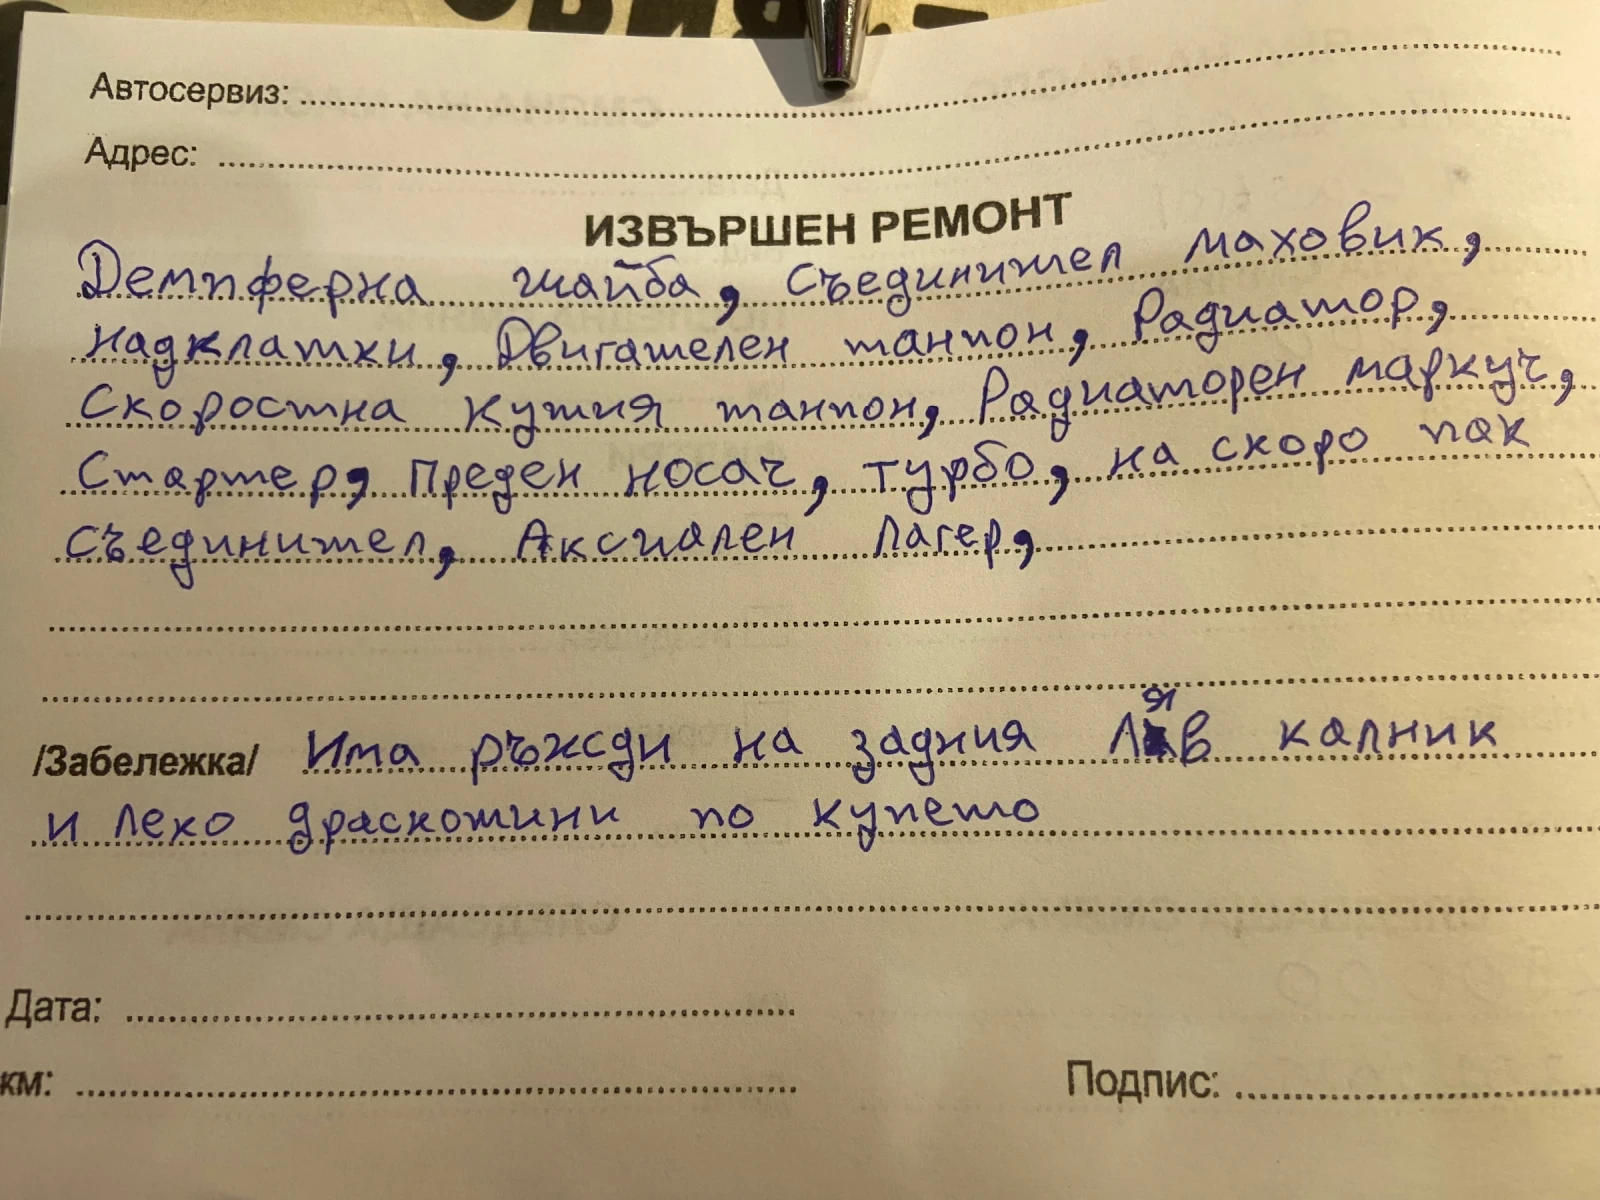 Автосервиз:
Адрес:
ИЗВЪРШЕН РЕМОНТ
Демпферна шайба, Съединител маховик,
Надклатки, Двигателен танпон, Радиатор,
Скоростна кутия танпон, Радиаторен маркуч,
Стартер, Преден носач, турбо, на скоро пак
Съединител, Аксиален Лагер,
/Забележка/ Има ръжди на задния Ляв калник
и леко драскотини по купето
Дата:
км:
Подпис: